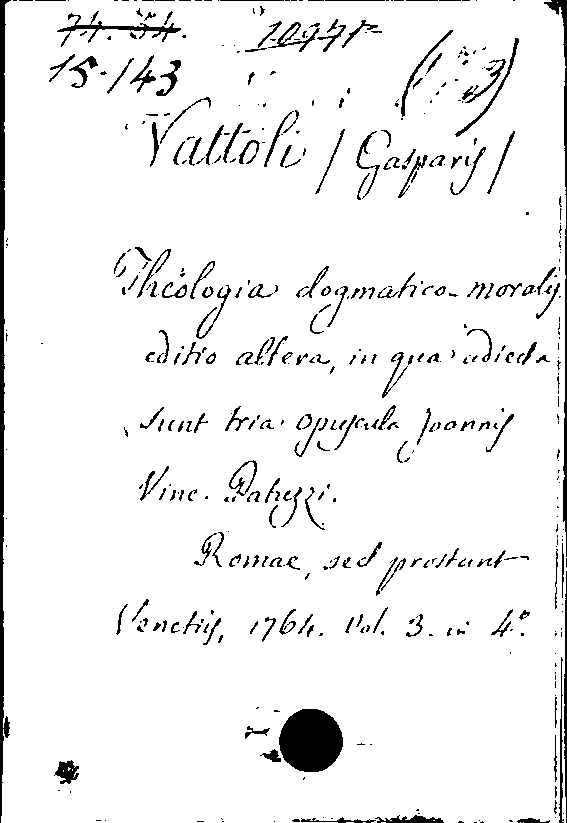 74. 54.
10971
15-143
(1 3)
Vattoli / Gasparis /
Theologia dogmatico-moralis
editio altera, in qua adiecta
sunt tria opuscula Joannis
Vinc. Patuzzi.
Romae, sed prostant
Venetiis, 1764. Vol. 3. in 4º.